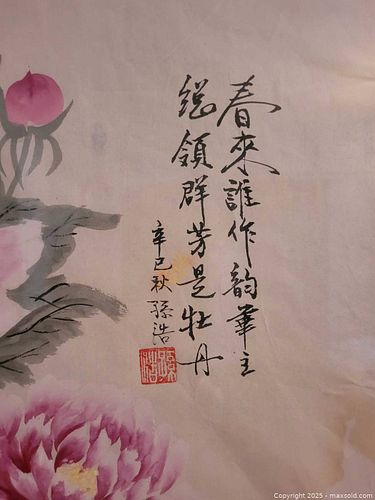 春來誰作韵華主
總領群芳是牡丹
辛巳秋孫浩
孫浩
Copyright 2025 - maxsold.com